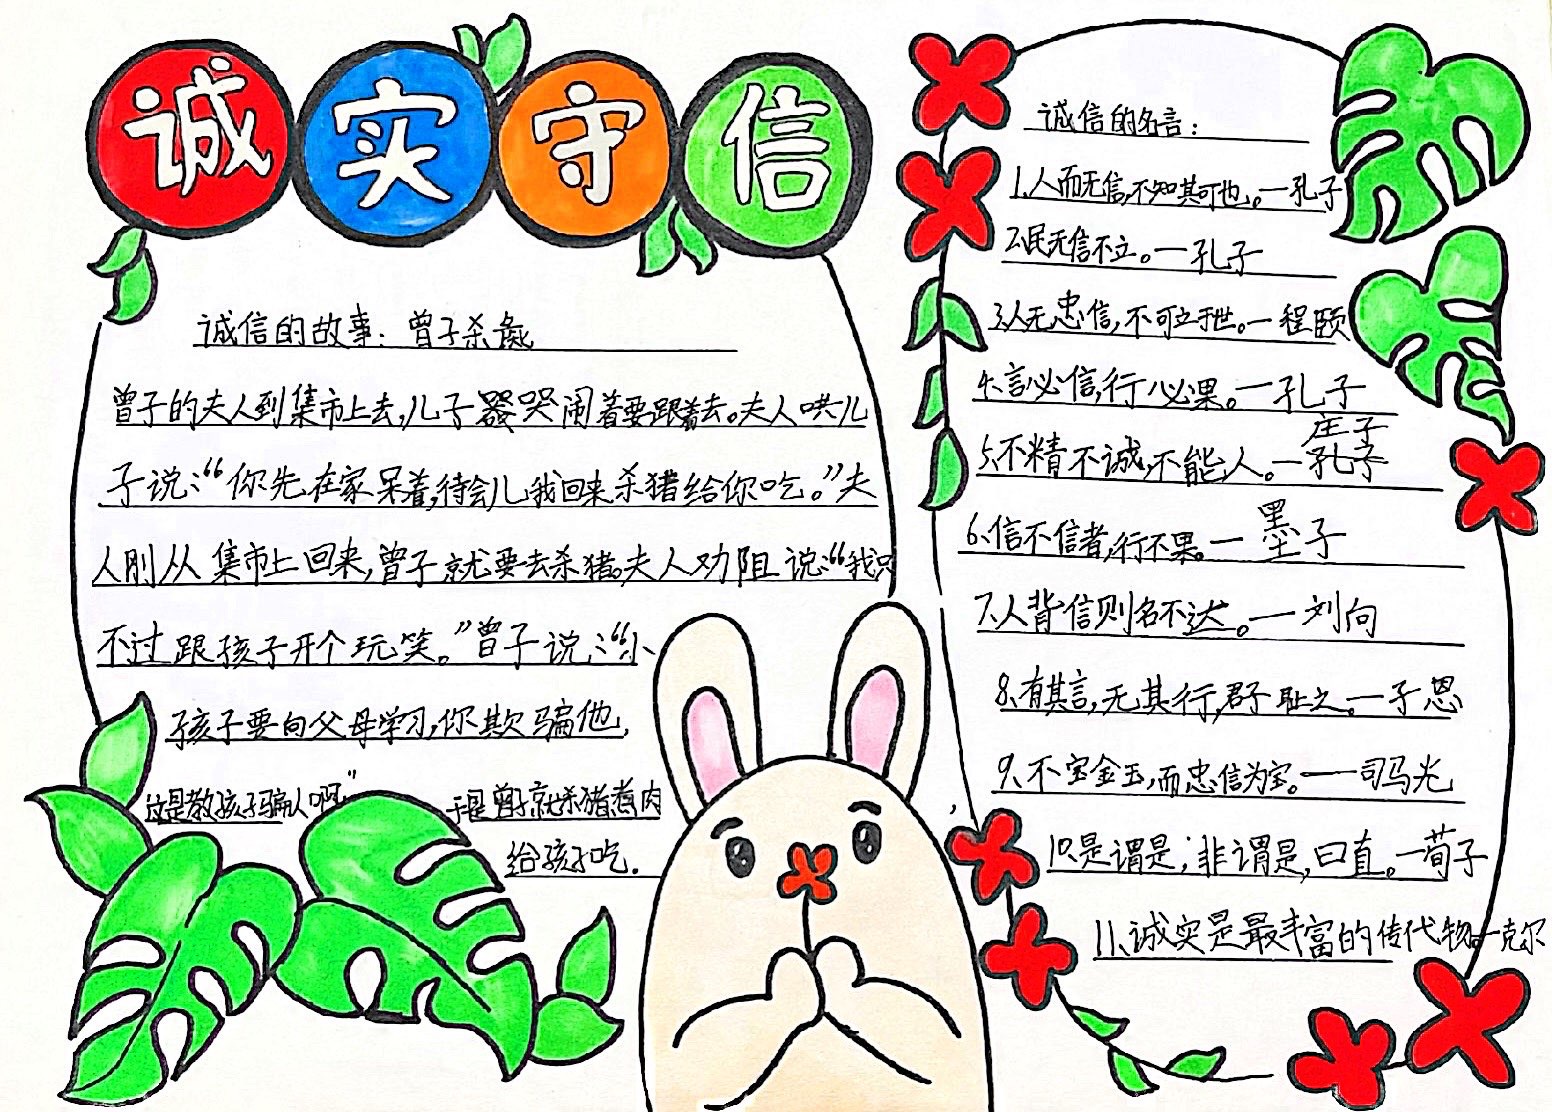 诚实守信
诚信的故事：曾子杀彘
曾子的夫人到集市上去,儿子哭闹着要跟着去。夫人哄儿
子说:“你先在家呆着,待会儿我回来杀猪给你吃。”夫
人刚从集市上回来,曾子就要去杀猪。夫人劝阻说:“我只
不过跟孩子开个玩笑。”曾子说:“小
孩子要向父母学习,你欺骗他,
这是教孩子骗人啊”
于是曾子就杀猪煮肉
给孩子吃.
诚信的名言：
1.人而无信,不知其可也。—孔子
2.民无信不立。—孔子
3.人无忠信,不可立于世。—程颐
4.言必信,行必果。—孔子
5.不精不诚,不能人。—庄子
6.信不信者,行不果。—墨子
7.人背信则名不达。—刘向
8.有其言,无其行,君子耻之。—子恩
9.不宝金玉,而忠信为宝。—司马光
10.是谓是;非谓是,曰直。—荀子
11.诚实是最丰富的传代物—克尔